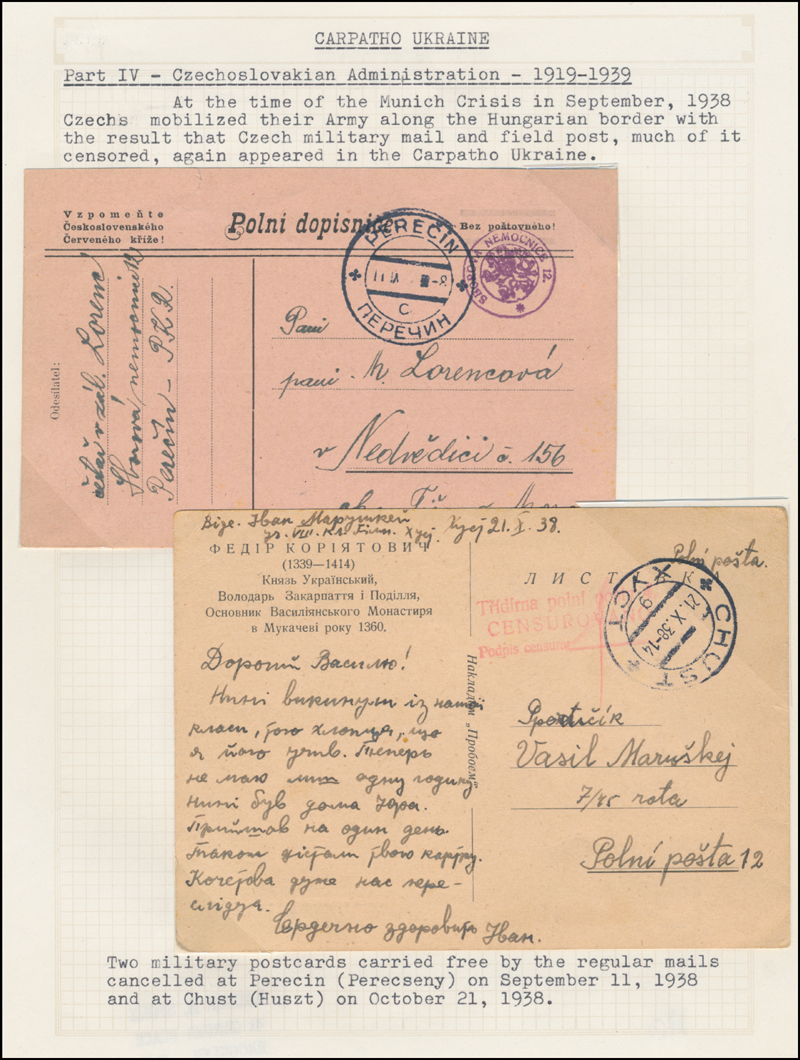 CARPATHO UKRAINE
Part IV - Czechoslovakian Administration - 1919-1939
At the time of the Munich Crisis in September, 1938
Czechs mobilized their Army along the Hungarian border with
the result that Czech military mail and field post, much of it
censored, again appeared in the Carpatho Ukraine.
Vzpomeňte
Československého
Červeného kříže!
Polní dopisnice
Bez poštovného!
PEREČÍN
ПЕРЕЧИН
c
NEMOCNICE 12.
Odesílatel:
Lorenc
nemocnice 12
Perečín - P.K.R.
Paní
paní M. Lorencová
v Nedvědici č. 156
Іван Марушкей
21.X.38.
ФЕДІР КОРІЯТОВИЧ
(1339—1414)
Князь Український,
Володарь Закарпаття і Поділля,
Основник Василіянського Монастиря
в Мукачеві року 1360.
Polní pošta.
ЛИСТІВКА
Třídírna polní
CENSUROV
Podpis censura
ХУСТ
CHUST
21.X.38-14
Накладом „Пробоєм"
Дорогий Василю!
Нині викинули із нашої
класи, того хлопця, що
я його
не маю одну годину
Нині був дома Юра.
Прийшов на один день.
Також дістали твою картку.
дуже нас пере-
слідує.
Сердечно здоровить Іван.
Vasil Maruškej
7/45 rota
Polní pošta 12
Two military postcards carried free by the regular mails
cancelled at Perecin (Perecseny) on September 11, 1938
and at Chust (Huszt) on October 21, 1938.